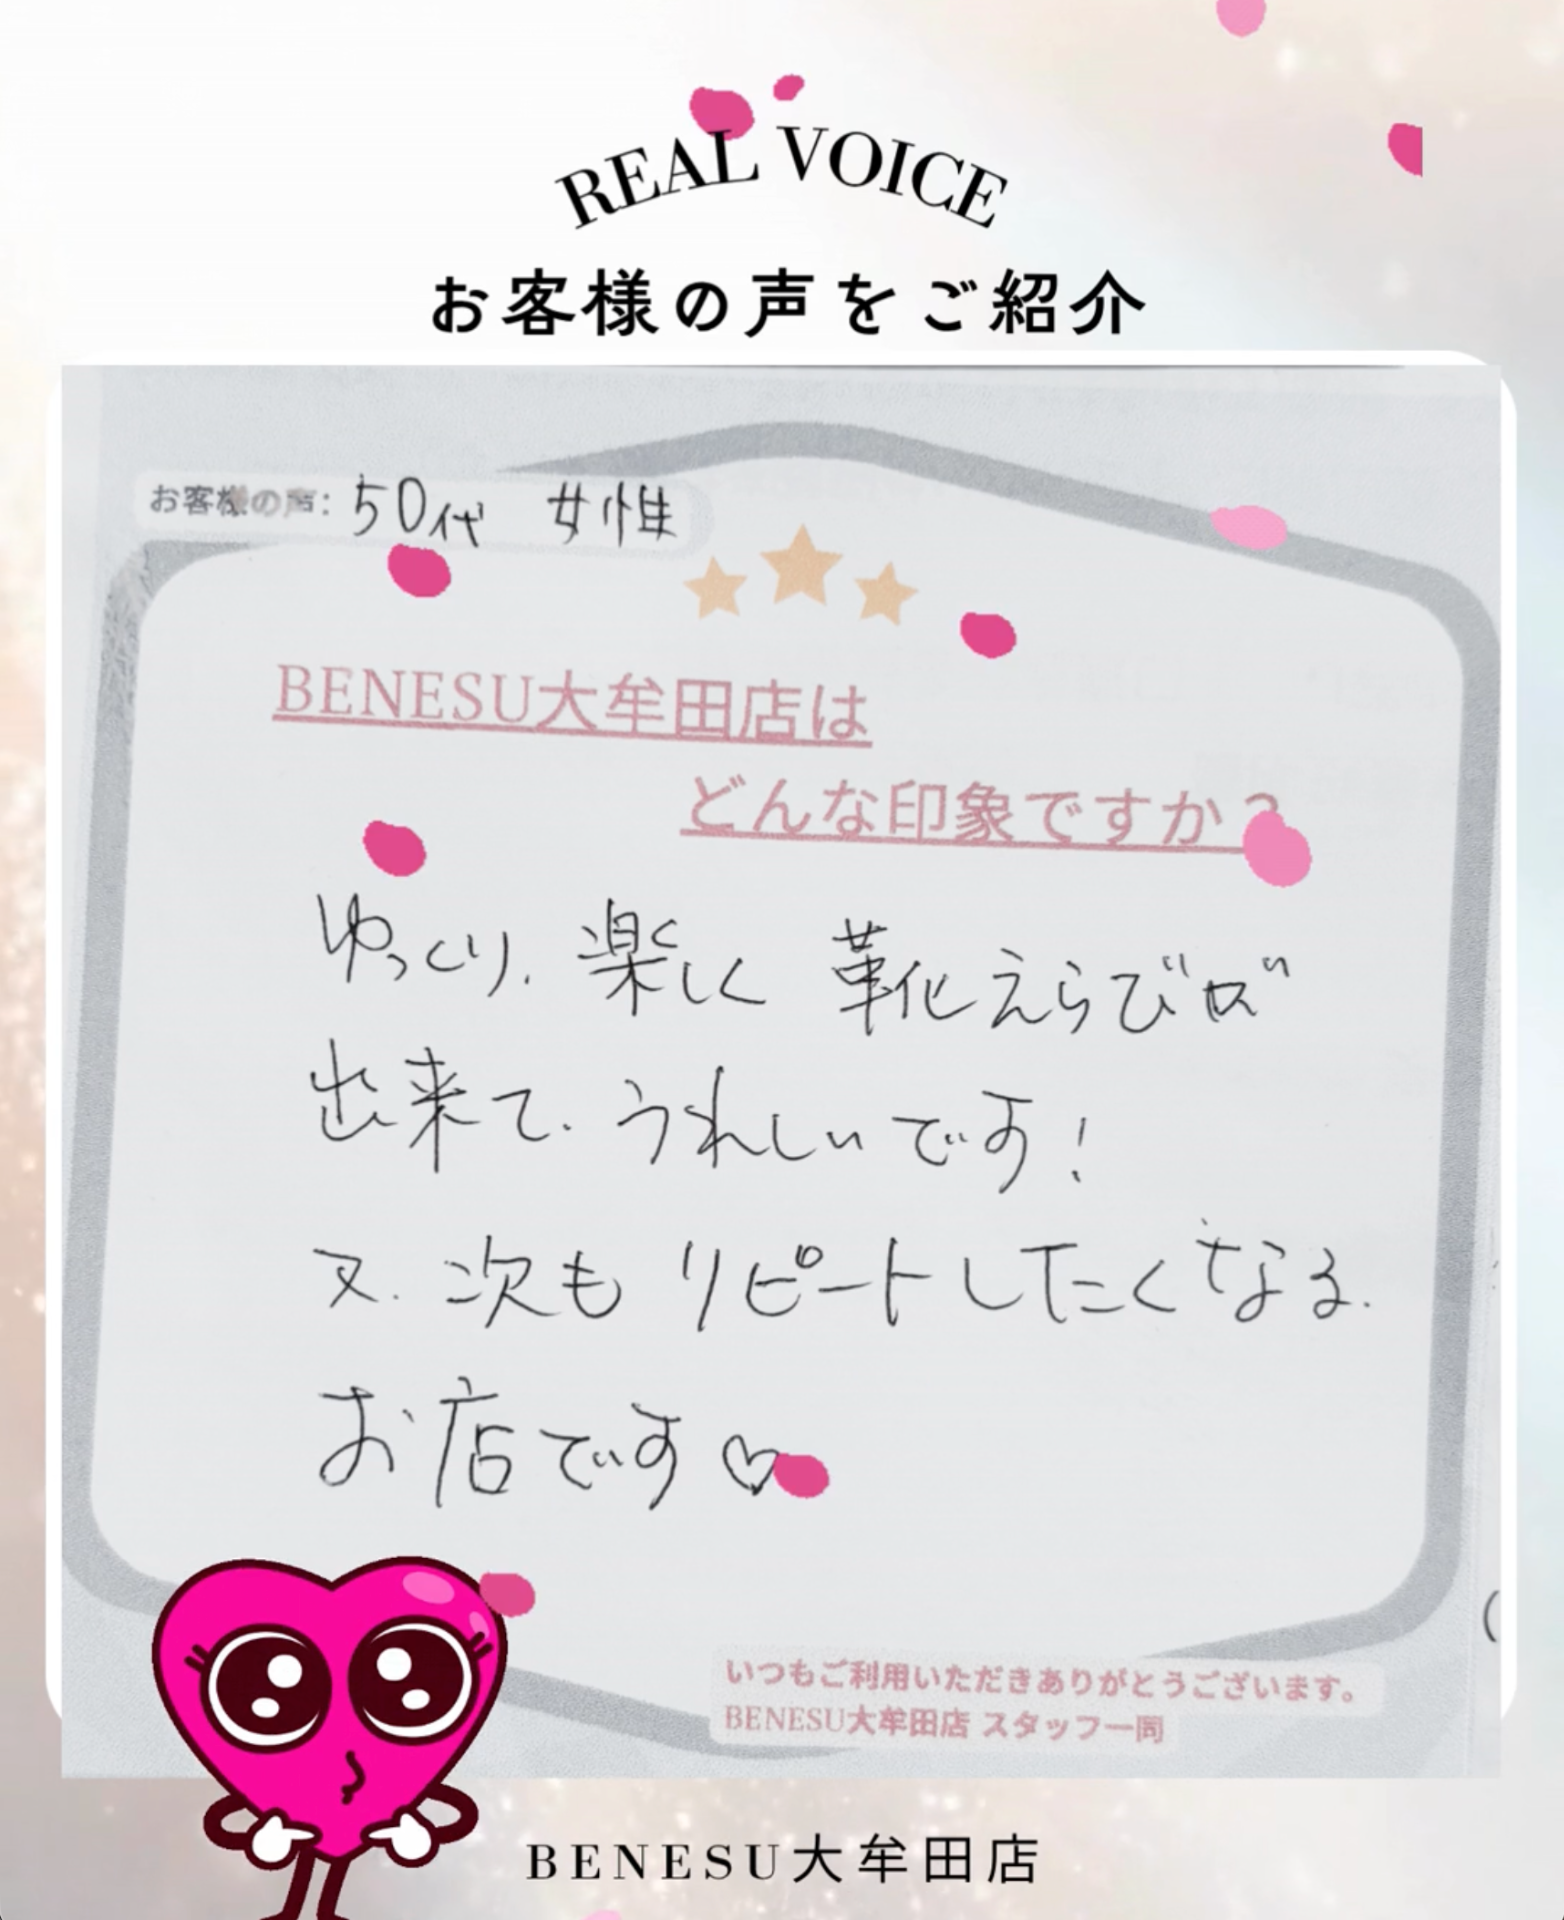 REAL VOICE
お客様の声をご紹介
お客様の声: 50代 女性
BENESU大牟田店は
どんな印象ですか?
ゆっくり. 楽しく 靴えらびが
出来て. うれしいです!
又. 次も リピートしたくなる.
お店です♡
いつもご利用いただきありがとうございます。
BENESU大牟田店 スタッフ一同
BENESU大牟田店